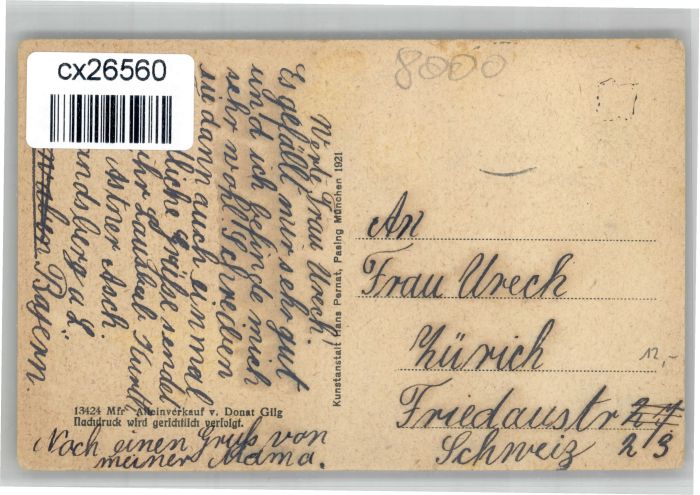 cx26560
8000
Werte Frau Urech,
Es gefällt mir sehr gut
und ich befinde mich
sehr wohl Schreiben
sie dann auch einmal
liche Grüße sendet
ihr Lautbub Kurt
Astner Asch
Landsberg a L.
Bayern.
Kunstanstalt Hans Pernat, Pasing München 1921
13424 Mfr Alleinverkauf v. Donat Gilg
Nachdruck wird gerichtlich verfolgt.
Noch einen Gruß von
meiner Mama.
An
Frau Urech
Zürich
12,-
Friedaustr
Schweiz 23